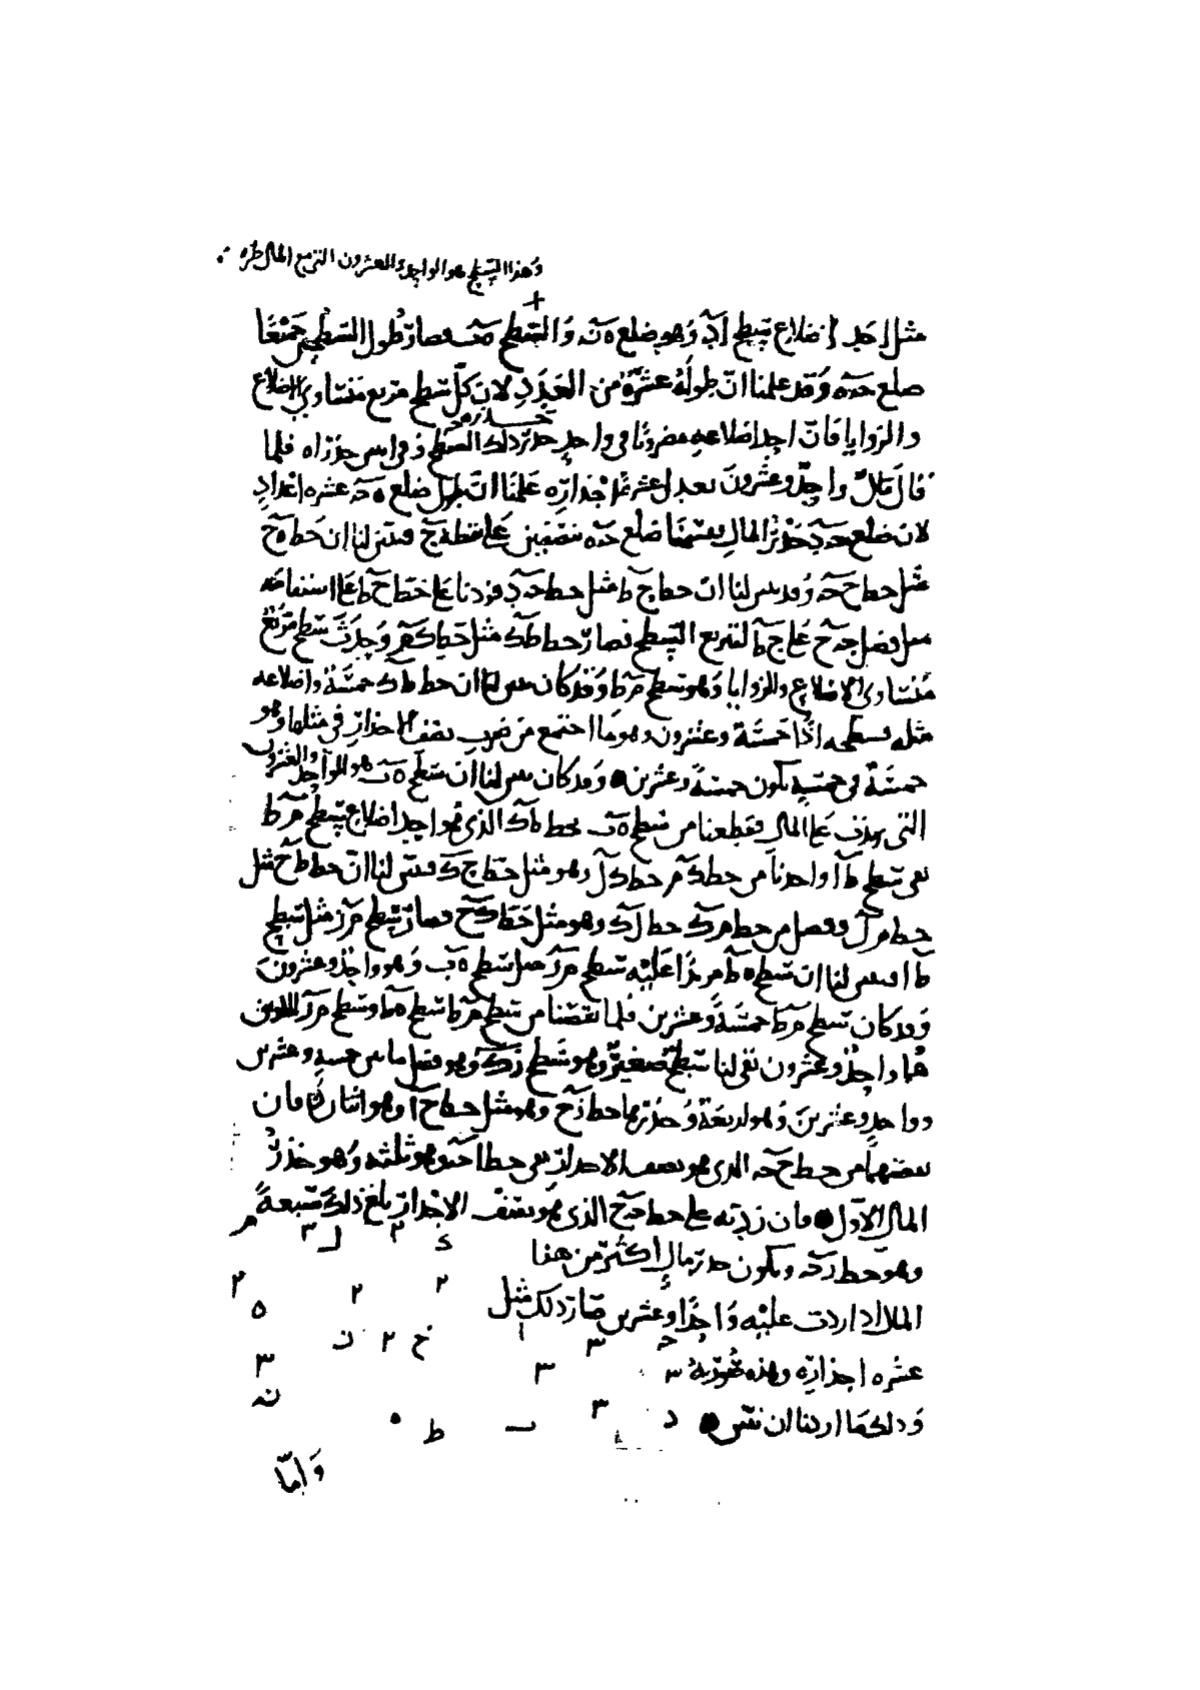 وهذا السطح هو الواحد والعشرون التي مع المال طره
مثل احد اضلاع سطح اد وهو ضلع ه ن والسطح ه ب فصار طول السطحين جميعا
ضلع ج ه وقد علمنا ان طوله عشرة من العدد لان كل سطح مربع متساوي الاضلاع
والزوايا فان احد اضلاعه مضروبا في واحد جذر ذلك السطح وفي اثنين جذراه فلما
قال مال وواحد وعشرون يعدل عشرة اجذاره علمنا ان طول ضلع ه ج عشره اعداد
لان ضلع ج د جذر المال فقسمنا ضلع ج ه نصفين على نقطة ح فتبين لنا ان خط ه ح
مثل خط ح ج وقد تبين لنا ان خط ح ط مثل خط ج د فزدنا على خط ح ط على استقامته
مثل فضل ج ح على ح ط لتربع السطح فصار خط ط ك مثل خط ك م وحدث سطح مربع
متساوي الاضلاع والزوايا وهو سطح م ط وقد كان تبين لنا ان خط ط ك خمسة واضلاعه
مثله فسطحه اذا خمسة وعشرون وهو ما اجتمع من ضرب نصف الاجذار في مثلها وهو
خمسة في خمسة يكون خمسة وعشرين وقد كان تبين لنا ان سطح ه ب هو الواحد والعشرون
التي زيدت على المال فقطعنا من سطح ه ب بخط ط ك الذي هو احد اضلاع سطح م ط
بقي سطح ط ا واخذنا من خط ك م خط ك ل وهو مثل خط ح ك فتبين لنا ان خط ط ح مثل
خط م ل وفضل من خط م ك خط ل ك وهو مثل خط ك ح فصار سطح م ر مثل سطح
ط ا فتبين لنا ان سطح ه ط مزيدا عليه سطح م ر مثل سطح ه ب وهو واحد وعشرون
وقد كان سطح م ط خمسة وعشرين فلما نقصنا من سطح م ط سطح ه ط وسطح م ر اللذين
هما واحد وعشرون بقي لنا سطح صغير وهو سطح ر ك وهو فضل ما بين خمسة وعشرين
وواحد وعشرين وهو اربعة وجذرها خط ر ح وهو مثل خط ح ا وهو اثنان فان
نقصتهما من خط ح ج الذي هو نصف الاجذار بقي خط ا ج وهو ثلثه وهو جذر
المال الاول فان زدته على خط ج ح الذي هو نصف الاجذار بلغ ذلك سبعة
وهو خط ر ج ويكون جذر مال اكثر من هذا
المال اذا زدت عليه واحدا وعشرين صار ذلك مثل
عشره اجذاره وهذه صورته
وذلك ما اردنا ان نبين
واما